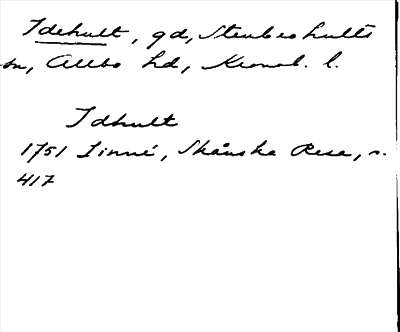 Idehult, gd, Stenbrohults
sn, Allbo hd, Kronob. l.
Idhult
1751 Linné, Skånska Resa, s.
417